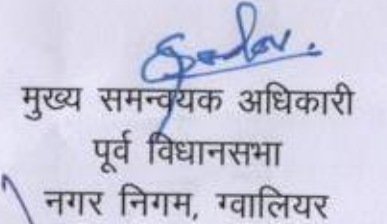 मुख्य समन्वयक अधिकारी
पूर्व विधानसभा
नगर निगम, ग्वालियर